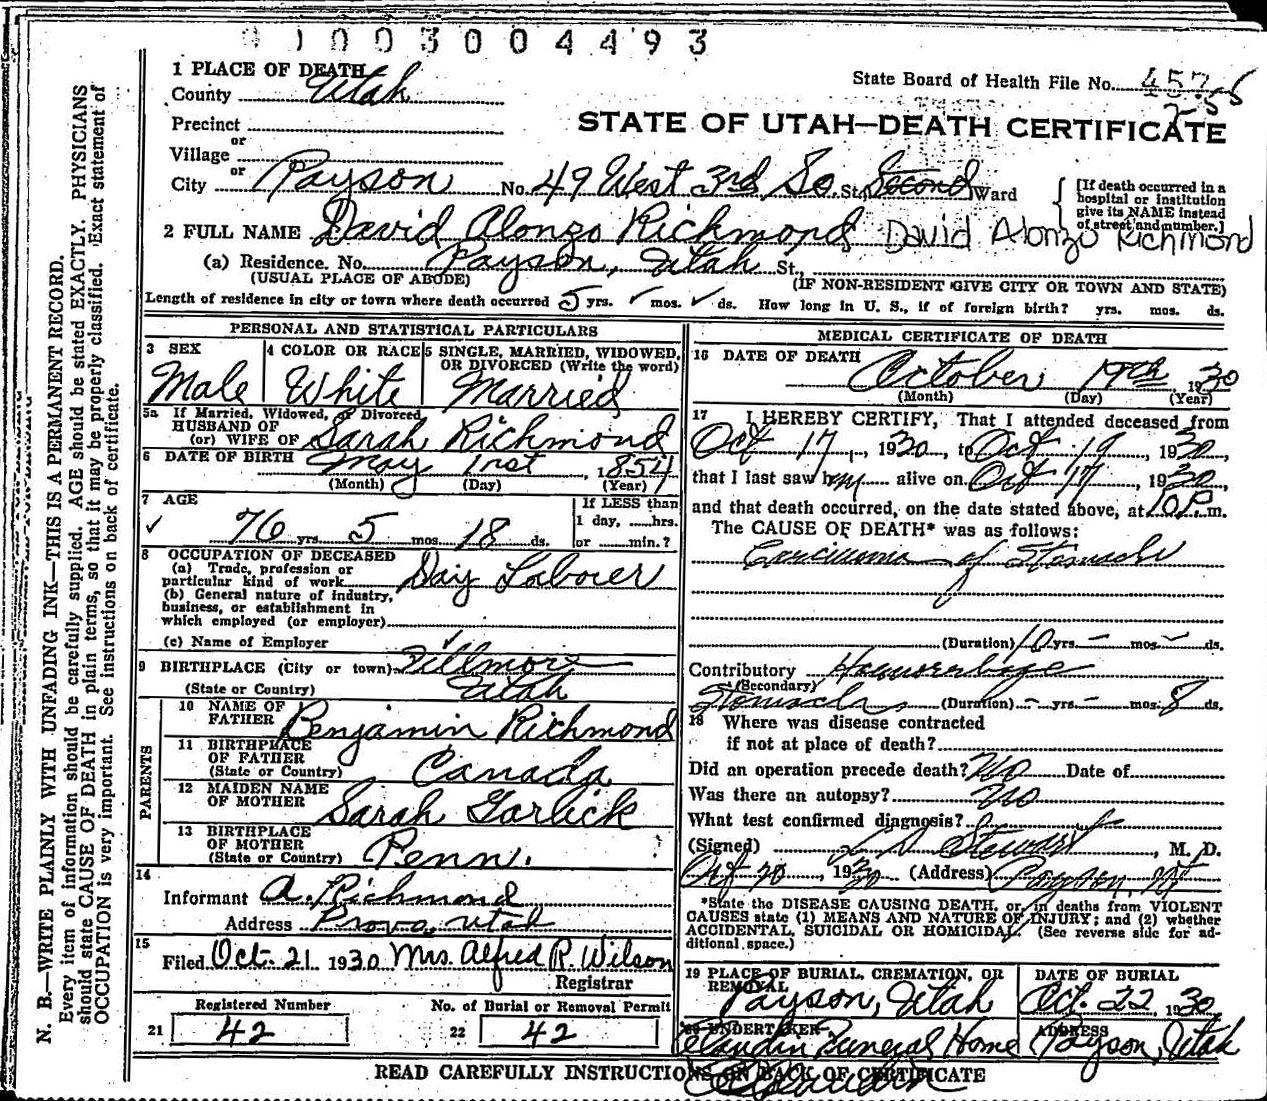 1003004493
1 PLACE OF DEATH
County Utah
State Board of Health File No.
Precinct
STATE OF UTAH—DEATH CERTIFICATE
or
Village
or
City Payson No. 49 West 3rd So St., Second Ward
[If death occurred in a
hospital or institution
give its NAME instead
of street and number.]
2 FULL NAME David Alonzo Richmond David Alonzo Richmond
(a) Residence. No. Payson, Utah St.,
(USUAL PLACE OF ABODE) (IF NON-RESIDENT GIVE CITY OR TOWN AND STATE)
Length of residence in city or town where death occurred 5 yrs. ✓ mos. ✓ ds. How long in U. S., if of foreign birth? yrs. mos. ds.
PERSONAL AND STATISTICAL PARTICULARS
3 SEX
Male
4 COLOR OR RACE
White
5 SINGLE, MARRIED, WIDOWED,
OR DIVORCED (Write the word)
Married
5a If Married, Widowed, or Divorced
HUSBAND OF
(or) WIFE OF Sarah Richmond
6 DATE OF BIRTH May 1rst, 1854
(Month) (Day) (Year)
7 AGE
✓ 76 yrs. 5 mos. 18 ds.
If LESS than
1 day, ......hrs.
or ......min.?
8 OCCUPATION OF DECEASED
(a) Trade, profession or
particular kind of work Day Laborer
(b) General nature of industry,
business, or establishment in
which employed (or employer)
(c) Name of Employer
9 BIRTHPLACE (City or town) Fillmore
(State or Country) Utah
PARENTS
10 NAME OF
FATHER Benjamin Richmond
11 BIRTHPLACE
OF FATHER
(State or Country) Canada
12 MAIDEN NAME
OF MOTHER Sarah Garlick
13 BIRTHPLACE
OF MOTHER
(State or Country) Penn.
14
Informant A. Richmond
Address Provo, Utah
15
Filed Oct. 21 1930 Mrs. Alfred R. Wilson
Registrar
Registered Number
21 42
No. of Burial or Removal Permit
22 42
MEDICAL CERTIFICATE OF DEATH
16 DATE OF DEATH
October 19th 1930
(Month) (Day) (Year)
17 I HEREBY CERTIFY, That I attended deceased from
Oct 17, 1930, to Oct 19, 1930,
that I last saw him alive on Oct 17, 1930,
and that death occurred, on the date stated above, at 10 P.m.
The CAUSE OF DEATH* was as follows:
Carcinoma of Stomach
(Duration) 10 yrs. – mos. – ds.
Contributory Haemorrhage
(Secondary)
Stomach (Duration) – yrs. – mos. 8 ds.
18 Where was disease contracted
if not at place of death?
Did an operation precede death? No Date of
Was there an autopsy? No
What test confirmed diagnosis?
(Signed) Stewart, M. D.
Oct 20, 1930 (Address) Payson, Ut
*State the DISEASE CAUSING DEATH, or, in deaths from VIOLENT
CAUSES state (1) MEANS AND NATURE OF INJURY; and (2) whether
ACCIDENTAL, SUICIDAL OR HOMICIDAL. (See reverse side for ad-
ditional space.)
19 PLACE OF BURIAL, CREMATION, OR
REMOVAL
Payson, Utah
DATE OF BURIAL
Oct. 22, 1930
20 UNDERTAKER
Funeral Home
ADDRESS
Payson, Utah
READ CAREFULLY INSTRUCTIONS ON BACK OF CERTIFICATE
N. B.—WRITE PLAINLY WITH UNFADING INK—THIS IS A PERMANENT RECORD.
Every item of information should be carefully supplied. AGE should be stated EXACTLY. PHYSICIANS
should state CAUSE OF DEATH in plain terms, so that it may be properly classified. Exact statement of
OCCUPATION is very important. See instructions on back of certificate.